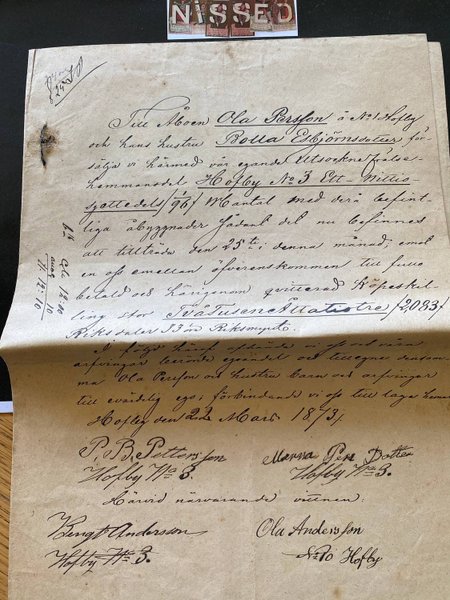 NiSSED
Till Åboen Ola Persson å No 1 Hofby
och hans hustru Bolla Esbjörnsdotter för-
sälja vi härmed vår egande Utsockne frälse-
hemmansdel Hofby No 3 Ett Nittio-
sjettedels /96/ Mantal med derå befint-
liga åbyggnader Sådant det nu befinnes
att tillträda den 25te i denna månad; emot
en oss emellan öfverenskommen till fullo
betald och härigenom qvitterad Köpeskil-
ling stor TvåTusenÅttatiotre /2083/
Riksdaler Riksmynt.
I följe häraf vi oss och våra
arfvingar egandet och tillegne densam-
ma Ola Persson och hustru barn och arfvingar
till evärdelig ego; förbindande vi oss till laga hemul
Hofby den 22 Mars 1873;
P. B. Pettersson
Hofby No 3.
Merna Pers Dotter
Hofby No 3.
Härvid närvarande vittnen.
Bengt Andersson
Hofby No 3.
Ola Andersson
No 10 Hofby